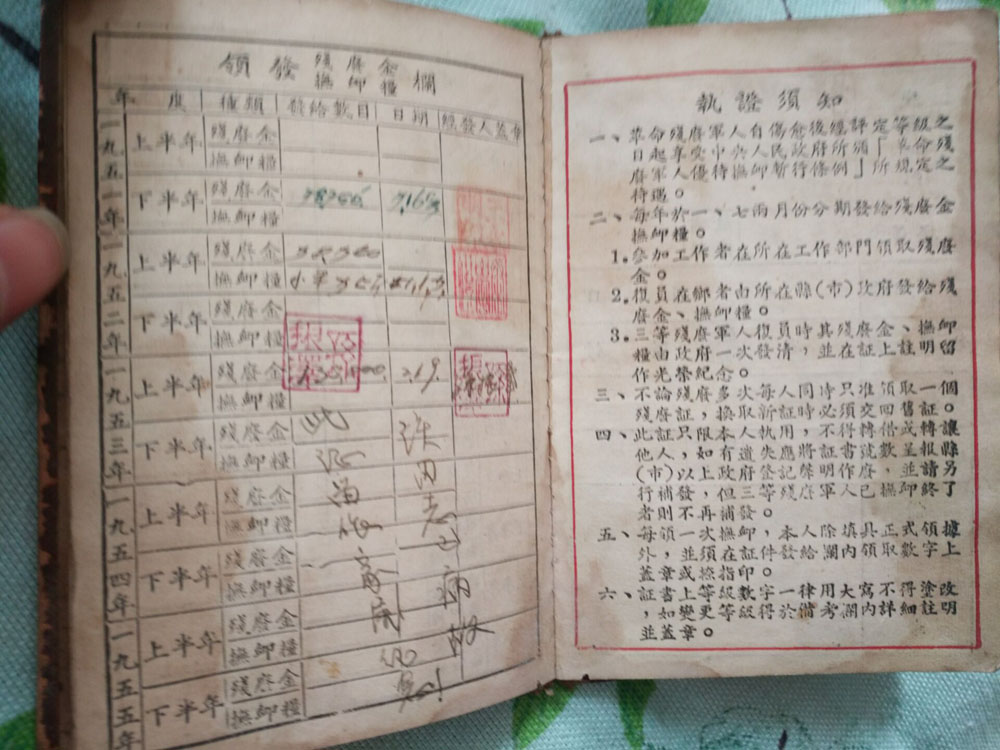 領發殘廢金撫卹糧欄
年度 種類 發給數目 日期 經發人蓋章
一九五一年 上半年 殘廢金
撫卹糧
下半年 殘廢金
撫卹糧
一九五二年 上半年 殘廢金
撫卹糧
下半年 殘廢金
撫卹糧
一九五三年 上半年 殘廢金
撫卹糧
下半年 殘廢金
撫卹糧
一九五四年 上半年 殘廢金
撫卹糧
下半年 殘廢金
撫卹糧
一九五五年 上半年 殘廢金
撫卹糧
下半年 殘廢金
撫卹糧
執證須知
一、革命殘廢軍人自傷愈後經評定等級之
日起享受中央人民政府所頒「革命殘
廢軍人優待撫卹暫行條例」所規定之
待遇。
二、每年於一、七兩月份分期發給殘廢金
撫卹糧。
1.參加工作者在所在工作部門領取殘廢
金。
2.復員在鄉者由所在縣(市)政府發給殘
廢金、撫卹糧。
3.三等殘廢軍人復員時其殘廢金、撫卹
糧由政府一次發清，並在証上註明留
作光榮紀念。
三、不論殘廢多次每人同時只准領取一個
殘廢証，換取新証時必須交回舊証。
四、此証只限本人執用，不得轉借或轉讓
他人，如有遺失應將証書號數呈報縣
(市)以上政府登記聲明作廢，並請另
行補發，但三等殘廢軍人已撫卹終了
者則不再補發。
五、每領一次撫卹，本人除填具正式領據
外，並須在証件發給欄內領取數字上
蓋章或捺指印。
六、証書上等級數字一律用大寫不得塗改
，如變更等級得於備考欄內詳細註明
並蓋章。